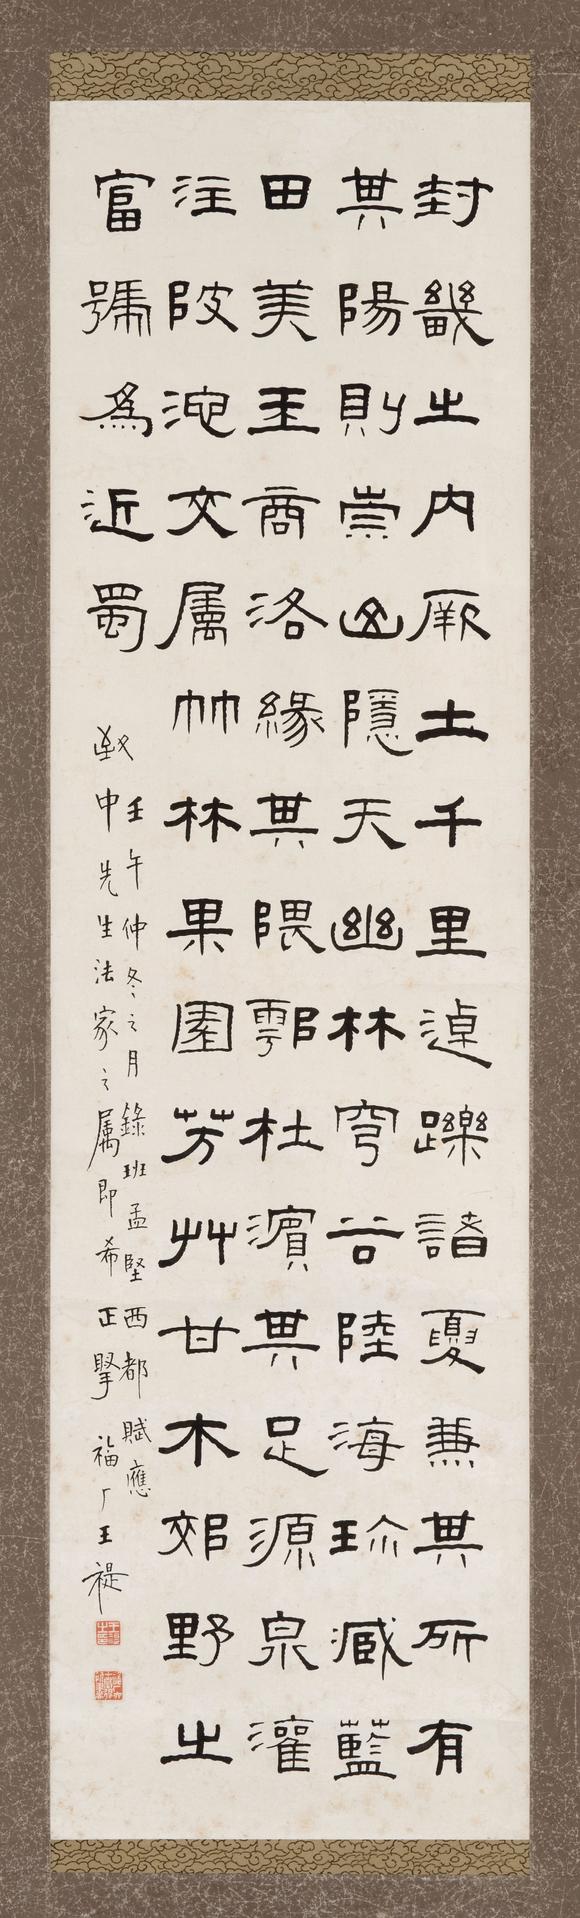 封畿之內厥土千里逴躒諸夏兼其所有
其陽則崇山隱天幽林穹谷陸海珍臧藍
田美玉商洛緣其隈鄠杜濱其足源泉灌
注陂池交屬竹林果園芳艸甘木郊野之
富號爲近蜀
壬午仲冬之月錄班孟堅西都賦應
致中先生法家之属即希正 福厂王禔